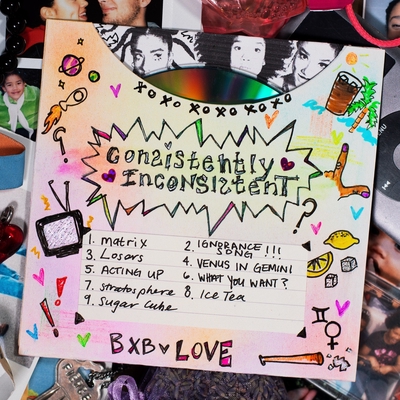 XOXO XOXOXO XOXO
Consistently
InconsistenT
1. matrix
2. IGNORANCE SONG !!!
3. Losars
4. VENUS IN GEMINI
5. ACTING UP
6. WHAT YOU WANT?
7. stratosphere
8. Ice Tea
9. Sugar Cube
BXB LOVE